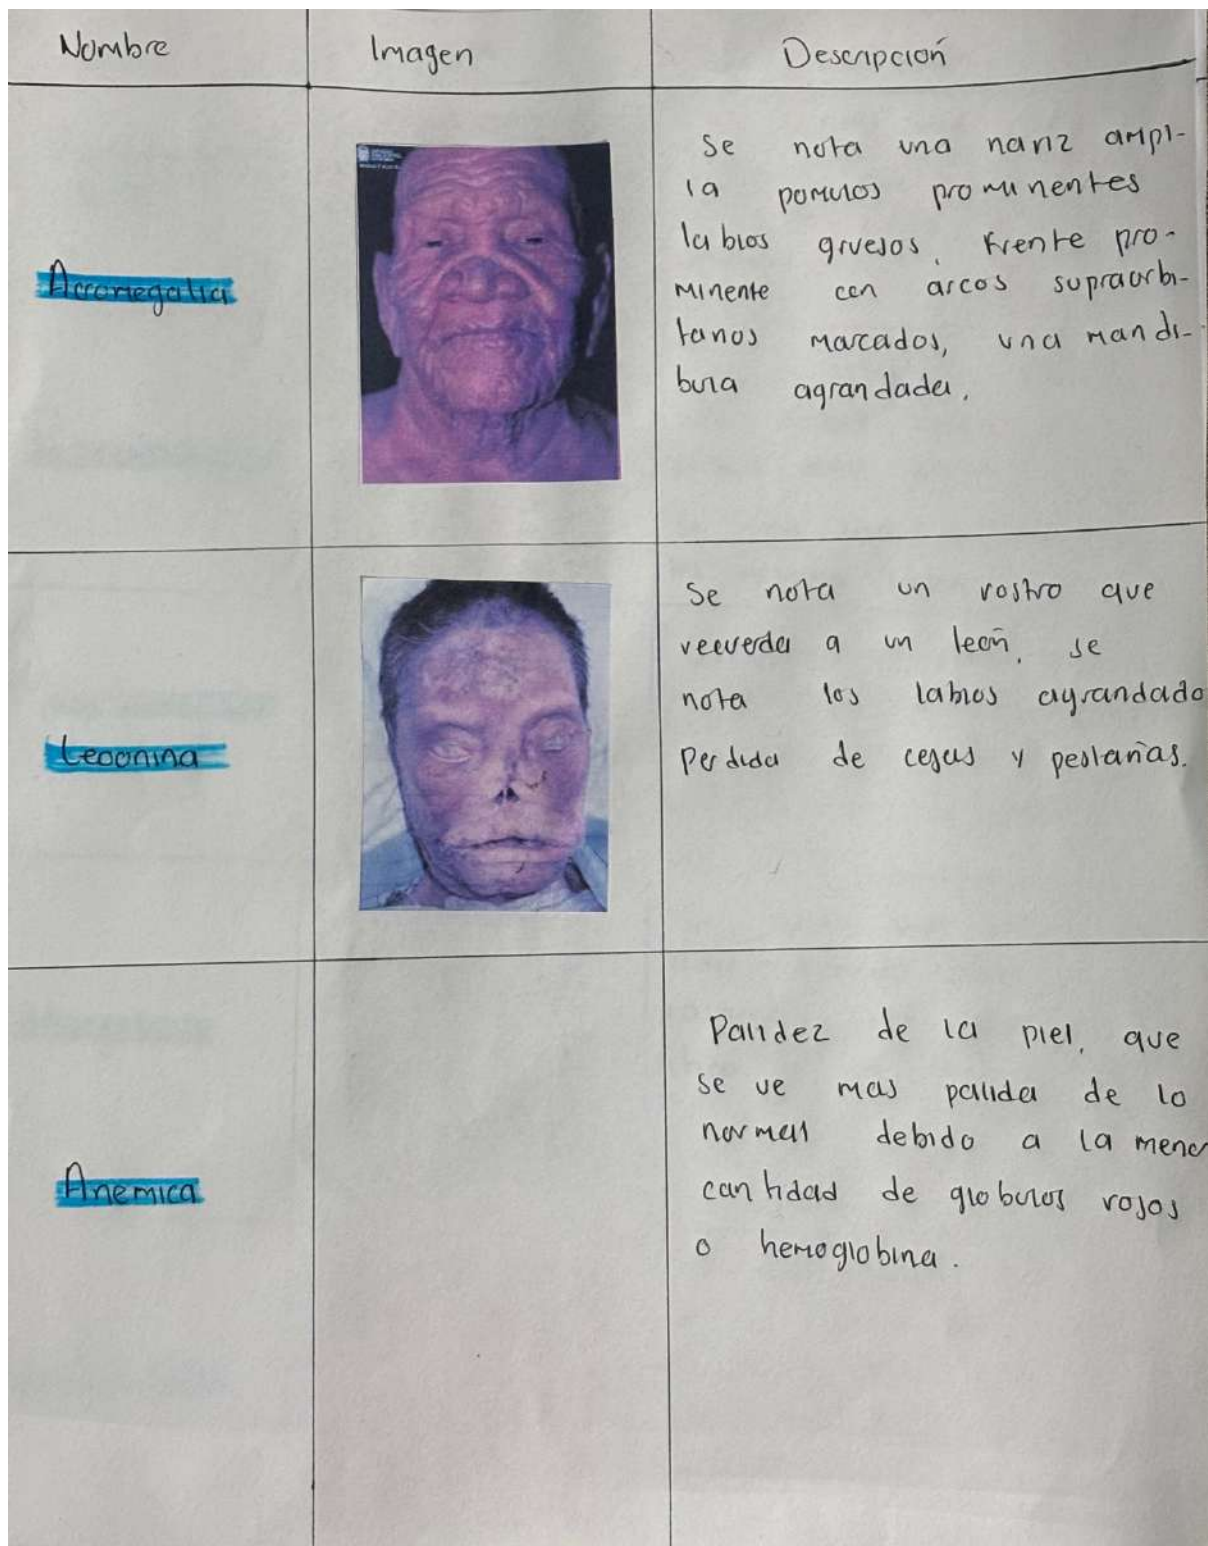 Nombre
Imagen
Descripción
Acromegalia
Se nota una nariz ampl-
ia pomulos prominentes
labios gruesos, frente pro-
minente con arcos supraorbi-
tarios marcados, una mandi-
bula agrandada.
Leoonina
Se nota un rostro que
recuerda a un león, se
nota los labios agrandado
Perdida de cejas y pestañas.
Anemica
Palidez de la piel, que
se ve mas palida de lo
normal debido a la meno
cantidad de globulos rojos
o hemoglobina.